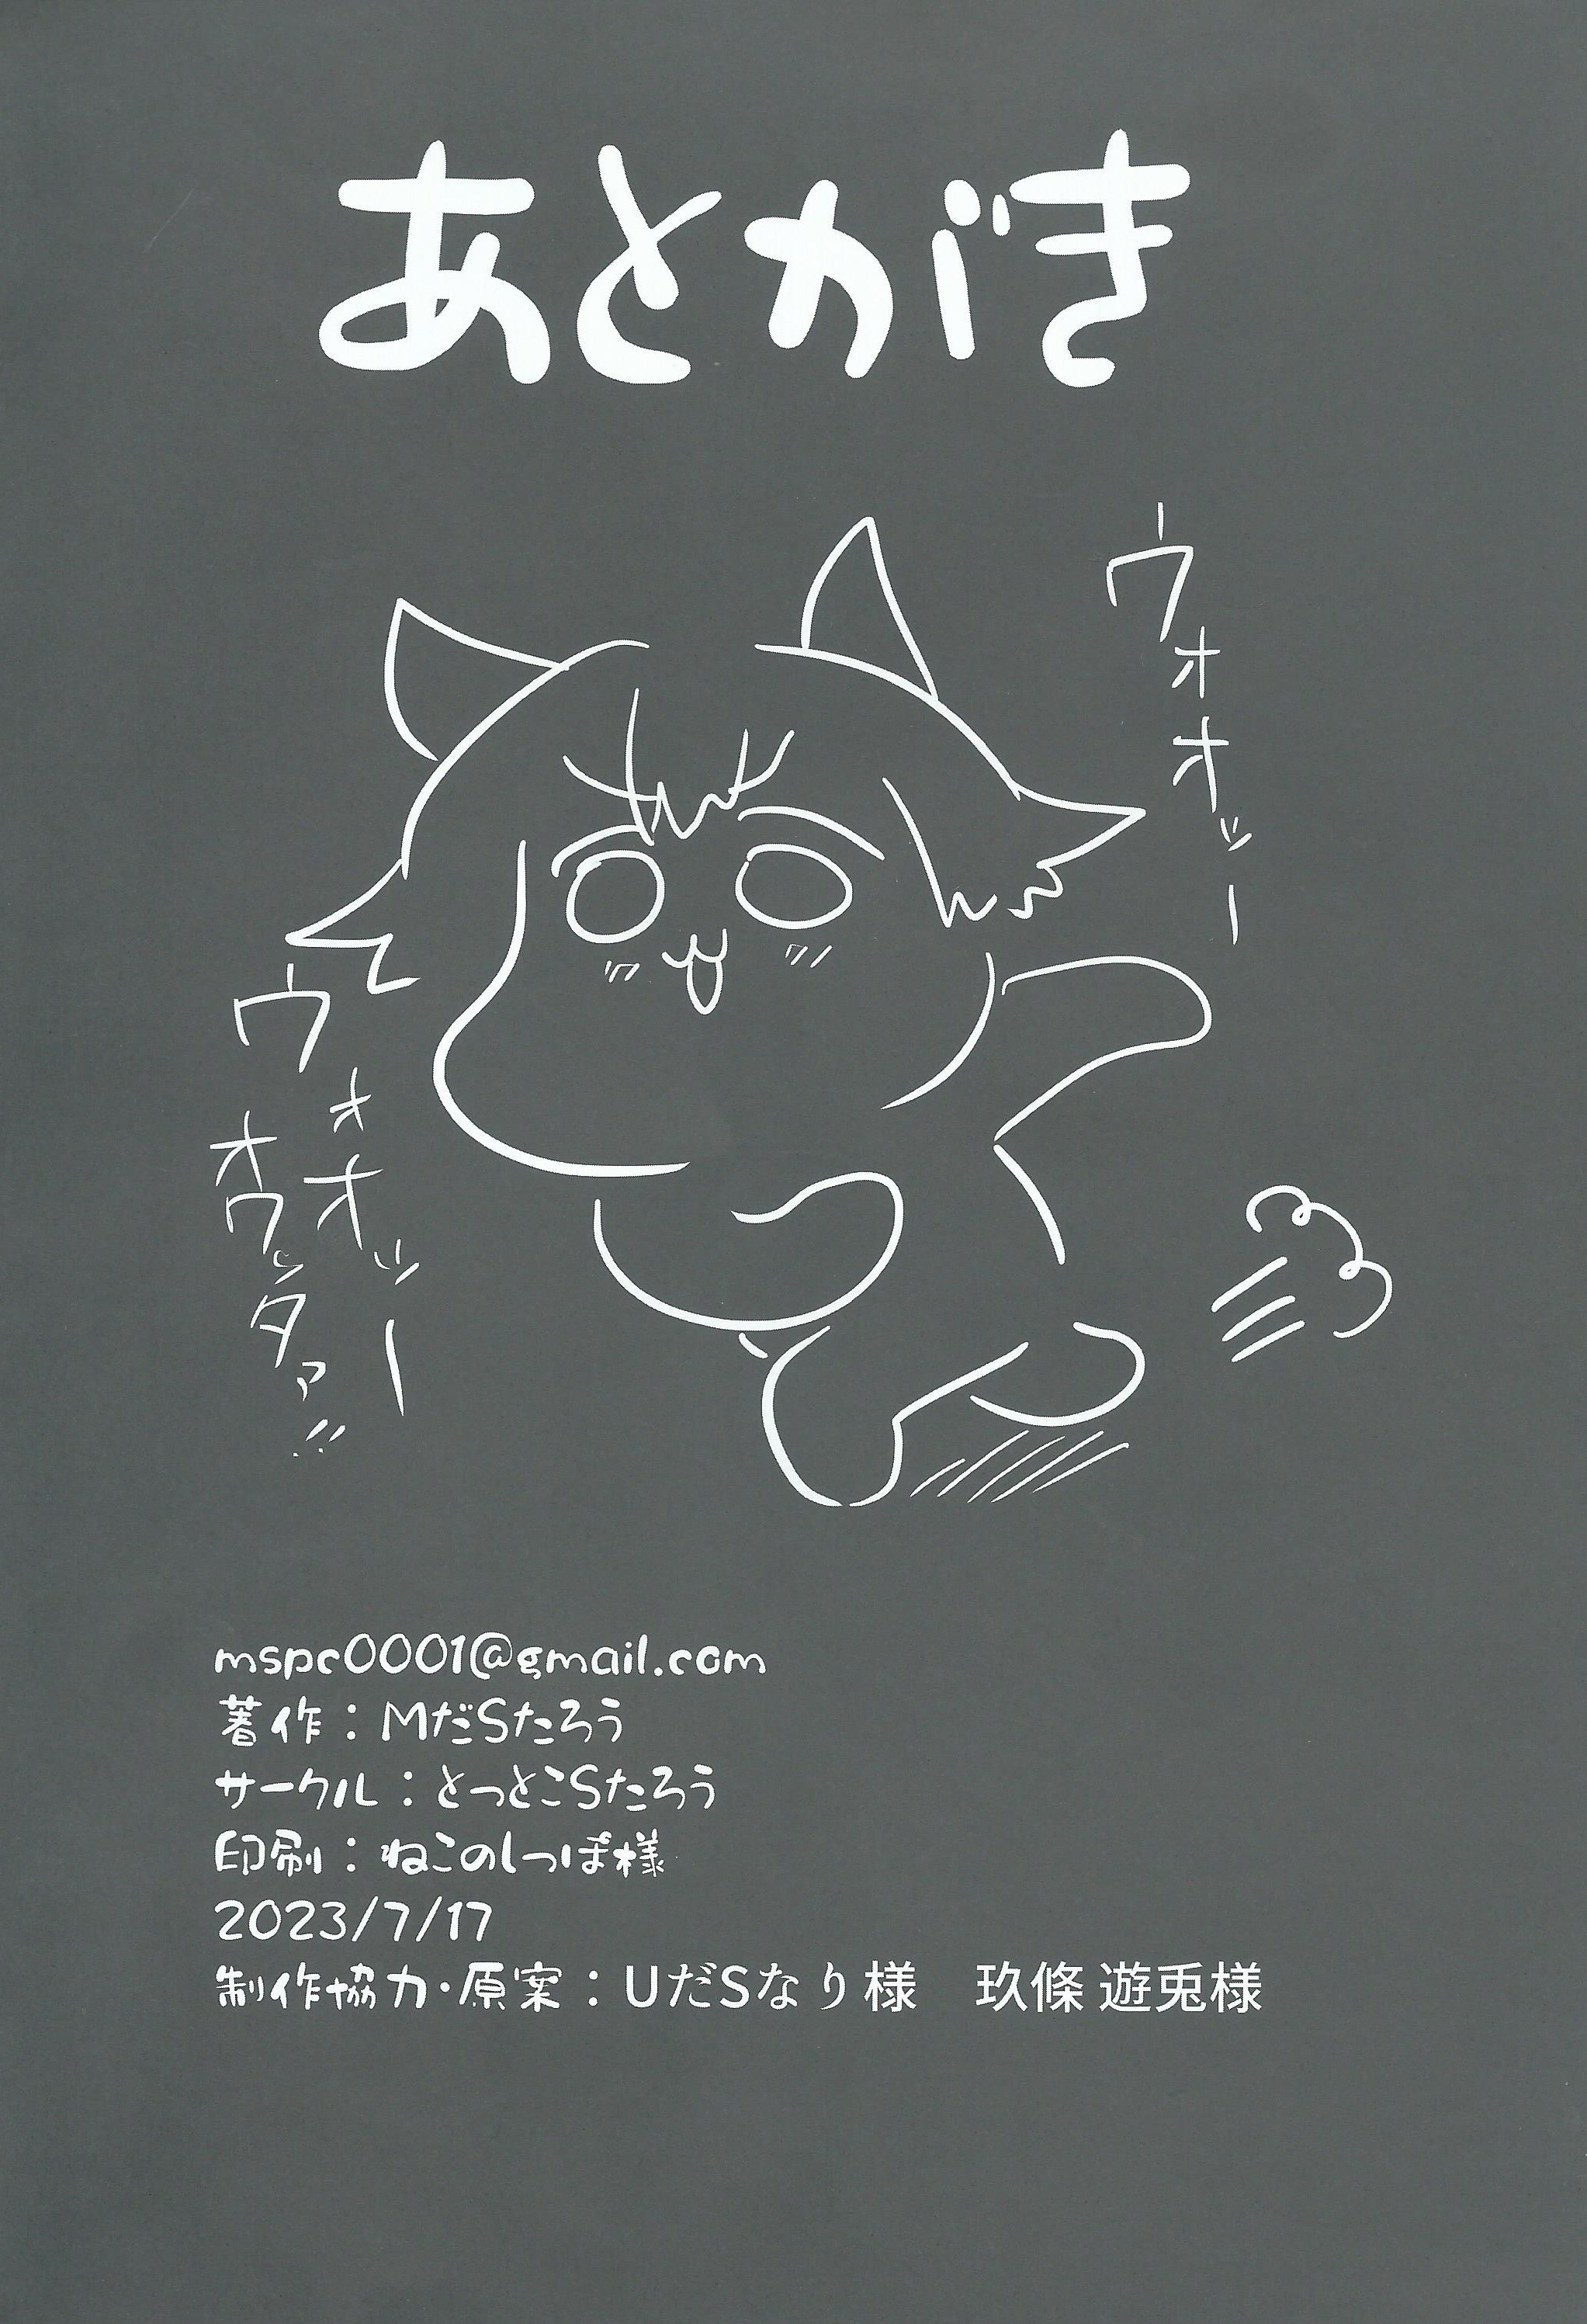 あとがき
ウォオッー
ウォオッー
オワッタァ!!
mspc0001@gmail.com
著作：MだSたろう
サークル：とっとこSたろう
印刷：ねこのしっぽ様
2023/7/17
制作協力・原案：UだSなり様　玖條 遊兎様